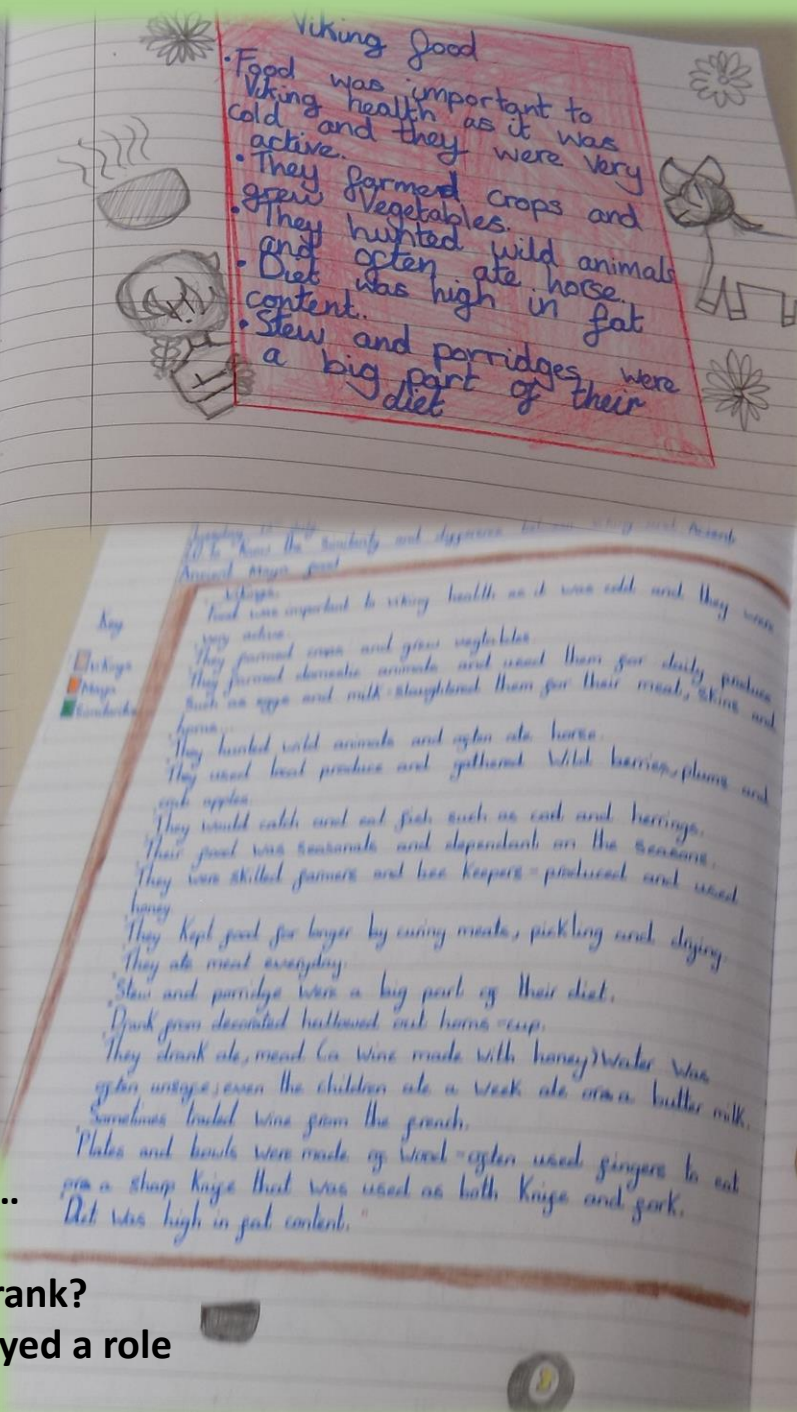 Viking food
• Food was important to
Viking health as it was
cold and they were very
active.
• They farmed crops and
grew vegetables.
• They hunted wild animals
and often ate horse.
• Diet was high in fat
content.
• Stew and porridges were
a big part of their
diet
to know the similarity and difference between Viking and Ancient
Ancient Maya food
Key
Vikings
Maya
Vikings
Food was important to viking health as it was cold and they were
very active.
They farmed crops and grew vegtables.
They farmed domestic animals and used them for daily produce
such as eggs and milk - slaughtered them for their meat, skins and
They hunted wild animals and often ate horse.
They used local produce and gathered Wild berries, plums and
apples.
They would catch and eat fish such as cod and herrings.
Their food was seasonals and dependant on the seasons.
They were skilled farmers and bee keepers - produced and used
honey.
They Kept food for longer by curing meats, pickling and drying.
They ate meat everyday.
Stew and porridge were a big part of their diet.
Drank from decorated hallowed out horns - cup.
They drank ale, mead (a wine made with honey) Water was
often unsafe; even the children ate a week ale or a butter milk.
Sometimes traded wine from the french.
Plates and bowls were made of Wood - often used fingers to eat
a sharp Knife that was used as both Knife and fork.
Diet was high in fat content.
..
rank?
yed a role